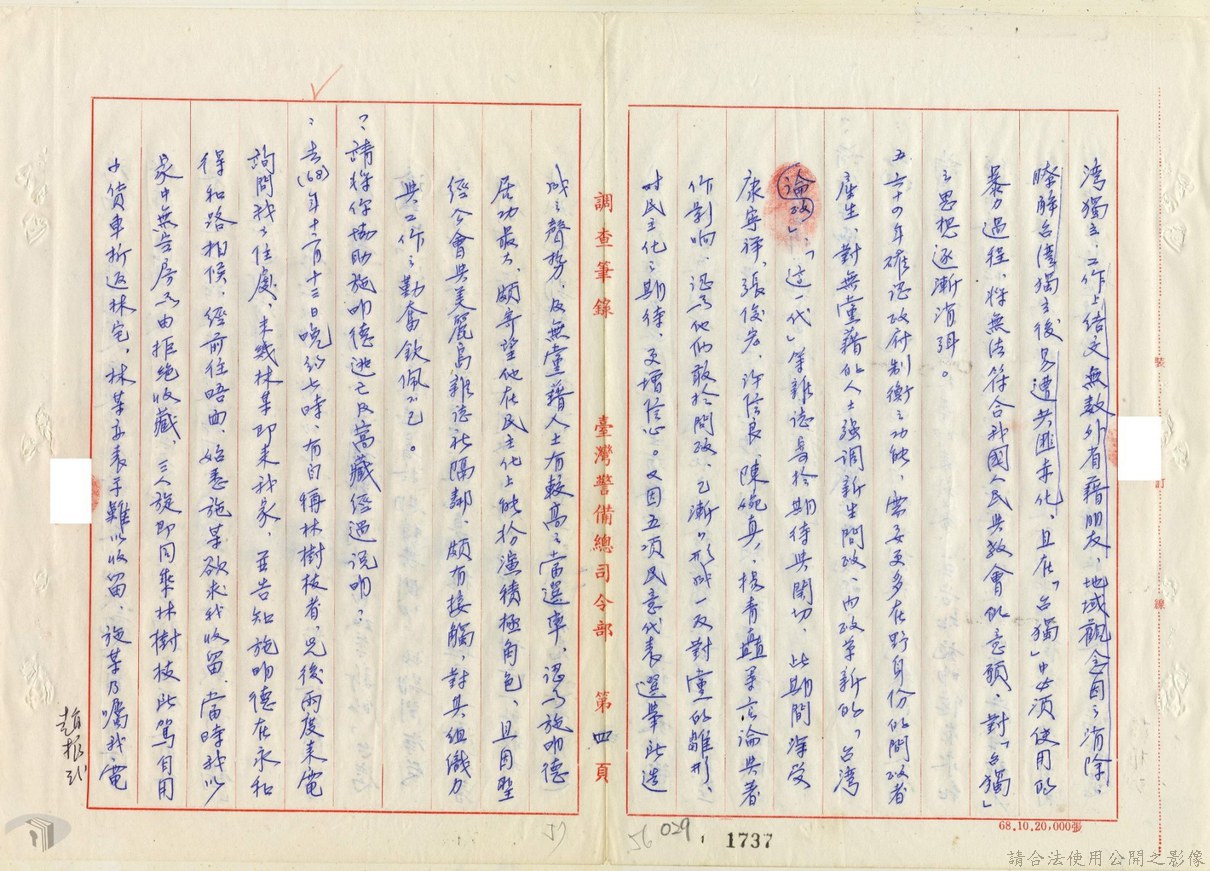 灣獨立、工作上結交無數外省藉朋友、地域觀念自之消除、
瞭解台灣獨立後易遭共匪赤化、且在「台獨」中必須使用的
暴力過程、将無法符合我國人民與教會的意願、對「台獨」
之思想逐漸消弭。
五、六十四年確認政府制衡之功能、需要更多在野身份的問政者
產生、對無黨藉的人士強調新生問政、內政革新的「台湾
論政」、「這一代」等雜誌寄於期待與関切、此期間深受
康寧祥、張俊宏、許信良、陳婉真、楊青矗等言論與著
作影响、認為他們敢於問政、已漸々形成一反對黨的雛形、
对民主化之期待、更增信心。又因五項民意代表選舉此造
成之聲势、及無黨藉人士有較高之當選率、認為施明德
居功最大、頗寄望他在民主化上能扮演積極角色、且因聖
經公會與美麗島雜誌社隔鄰、頗有接觸、對其組織力
與工作之勤奮欽佩不已。
問：請将你協助施明德逃亡及窩藏經過说明：
答：去(68)年十二月十三日晚約七時、有自稱林樹枝者、先後兩度来電
詢問我之住處、未幾林某即来我家、並告知施明德在永和
得和路相候、經前往晤面、始悉施某欲求我收留、當時我以
家中無空房為由拒絕收藏、三人旋即同乘林樹枝此駕自用
小貨車折返林宅、林某亦表示難以收留、施某乃囑我電
調查筆錄 臺灣警備總司令部 第四頁
裝 訂 線
68.10.20,000張
56
029
1737
57
趙振貳
請合法使用公開之影像